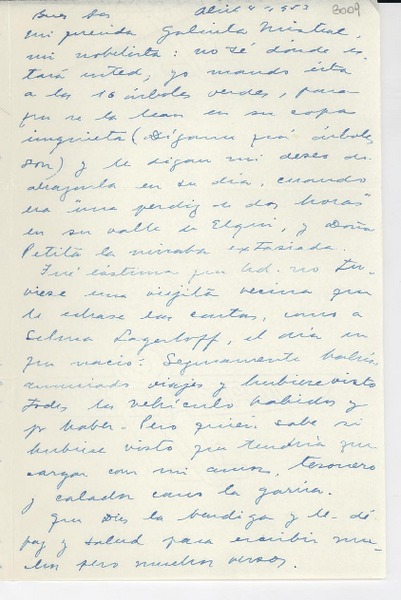 Bues As Abril 4 - 953 3009
Mi querida Gabriela Mistral,
mi nobelista: no sé donde es-
tará usted, yo mando ésta
a los 16 árboles verdes, para
que se la lean en su copa
inquieta (Dígame qué árboles
son) y le digan mi deseo de
abrazarla en su día, cuando
era "una perdiz de dos horas"
en su valle de Elqui, y Doña
Petita la miraba extasiada.
Fué lástima que Ud. no tu-
viese una viejita vecina que
le echase las cartas, como a
Selma Lagerloff, el día en
que nació. Seguramente habría
anunciado viajes y hubiese visto
todos los vehículos habidos y
por haber - Pero quien sabe si
hubiese visto que tendría que
cargar con mi amor, tesonero
y calador como la garúa.
Que Dios la bendiga y le dé
paz y salud para escribir mu-
chos pero muchos versos.